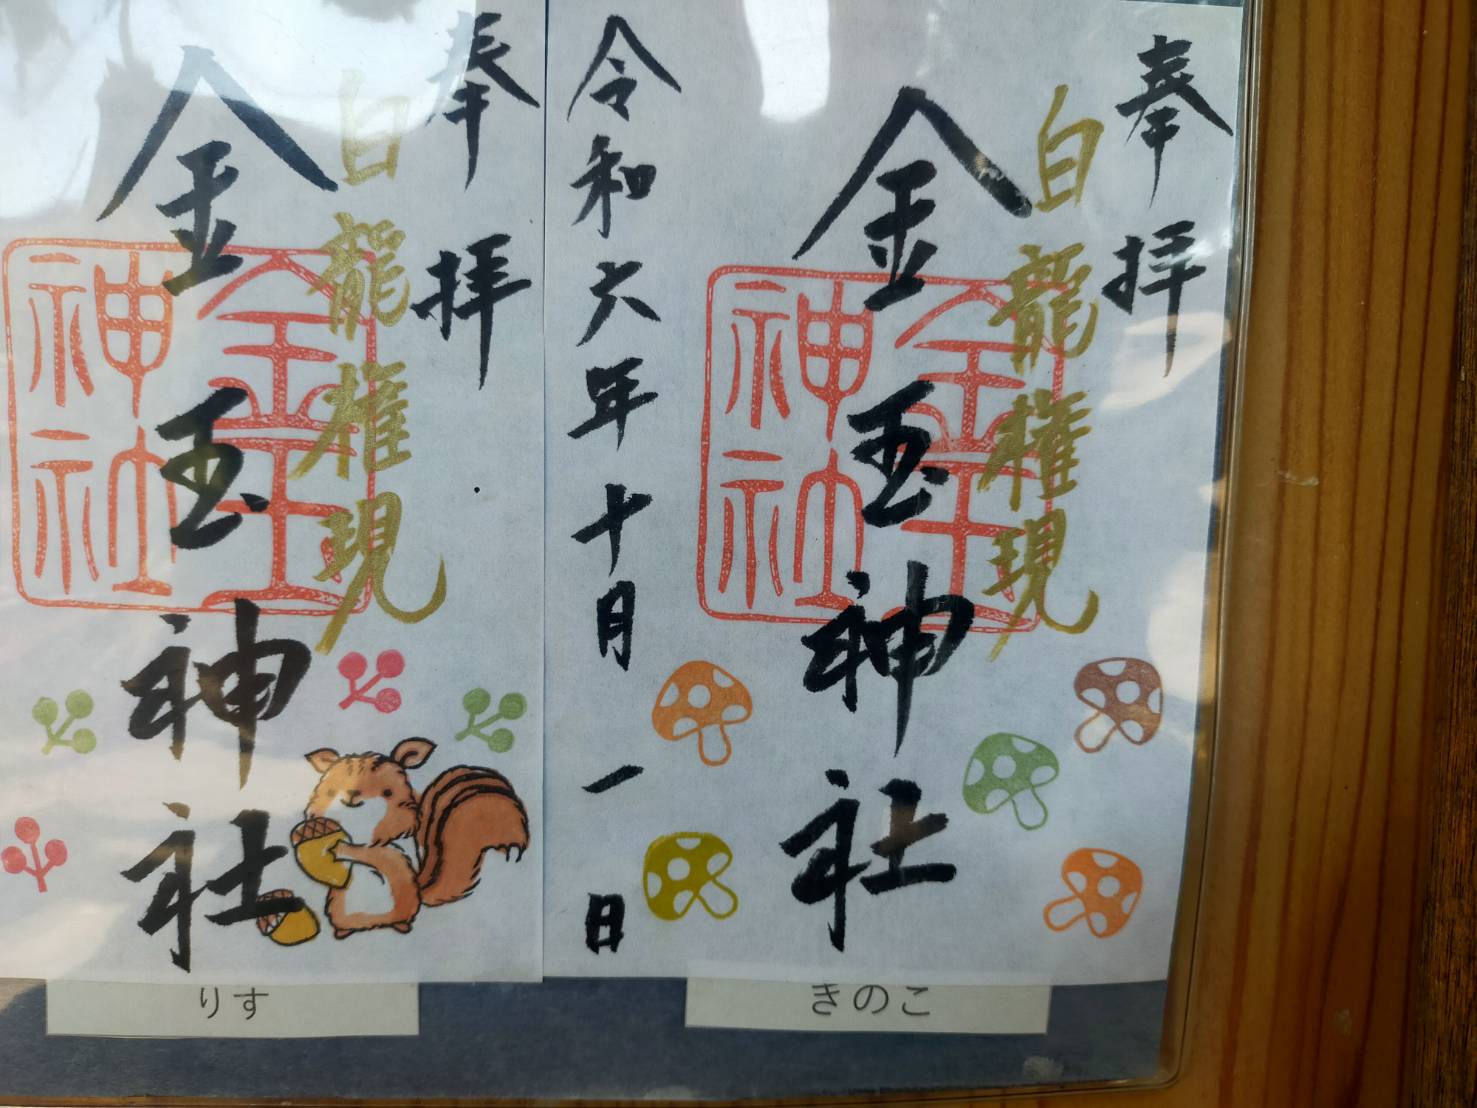 奉拝
白龍権現
金玉神社
金玉神社
令和六年十月一日
きのこ
奉拝
白龍権現
金玉神社
金玉神社
りす